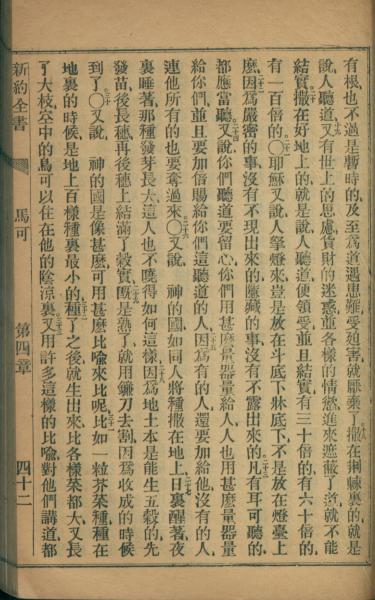 有根也不過是暫時的及至爲道遇患難受廹害就厭棄了撒在荆棘裏的就是
說人聽道又有世上的思慮貨財的迷惑並各樣的情慾進來遮蔽了道就不能
結實撒在好地上的就是說人聽道便領受並且結實有三十倍的有六十倍的
有一百倍的○耶穌又說人拏燈來豈是放在斗底下牀底下不是放在燈臺上
麽因爲嚴密的事沒有不現出來的隱藏的事沒有不露出來的凡有耳可聽的
都應當聽○又說你們聽道要留心你們用甚麽量器量給人人也用甚麽量器量
給你們並且要加倍賜給你們這聽道的人因爲有的人還要加給他沒有的人
連他所有的也要奪過來○又說　神的國如同人將種撒在地上日裏醒著夜
裏睡著那種發芽長大這人也不曉得如何這樣因爲地土本是能生五穀的先
發苗後長穗再後穗上結滿了穀實旣是熟了就用鐮刀去割因爲收成的時候
到了○又說　神的國是像甚麽可用甚麽比喩來比呢比如一粒芥菜種種在
地裏的時候是地上百樣種裏最小的種了之後就生出來比各樣菜都大又長
了大枝空中的鳥可以住在他的陰涼裏又用許多這樣的比喩對他們講道都
新約全書
馬可
第四章
四十二